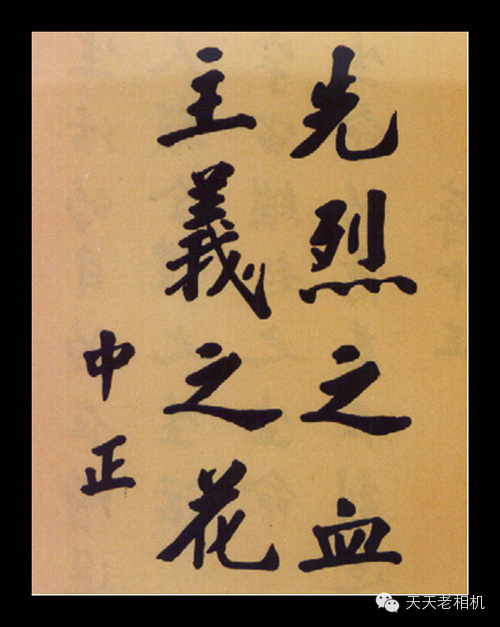 先烈之血
主義之花
中正
天天老相机